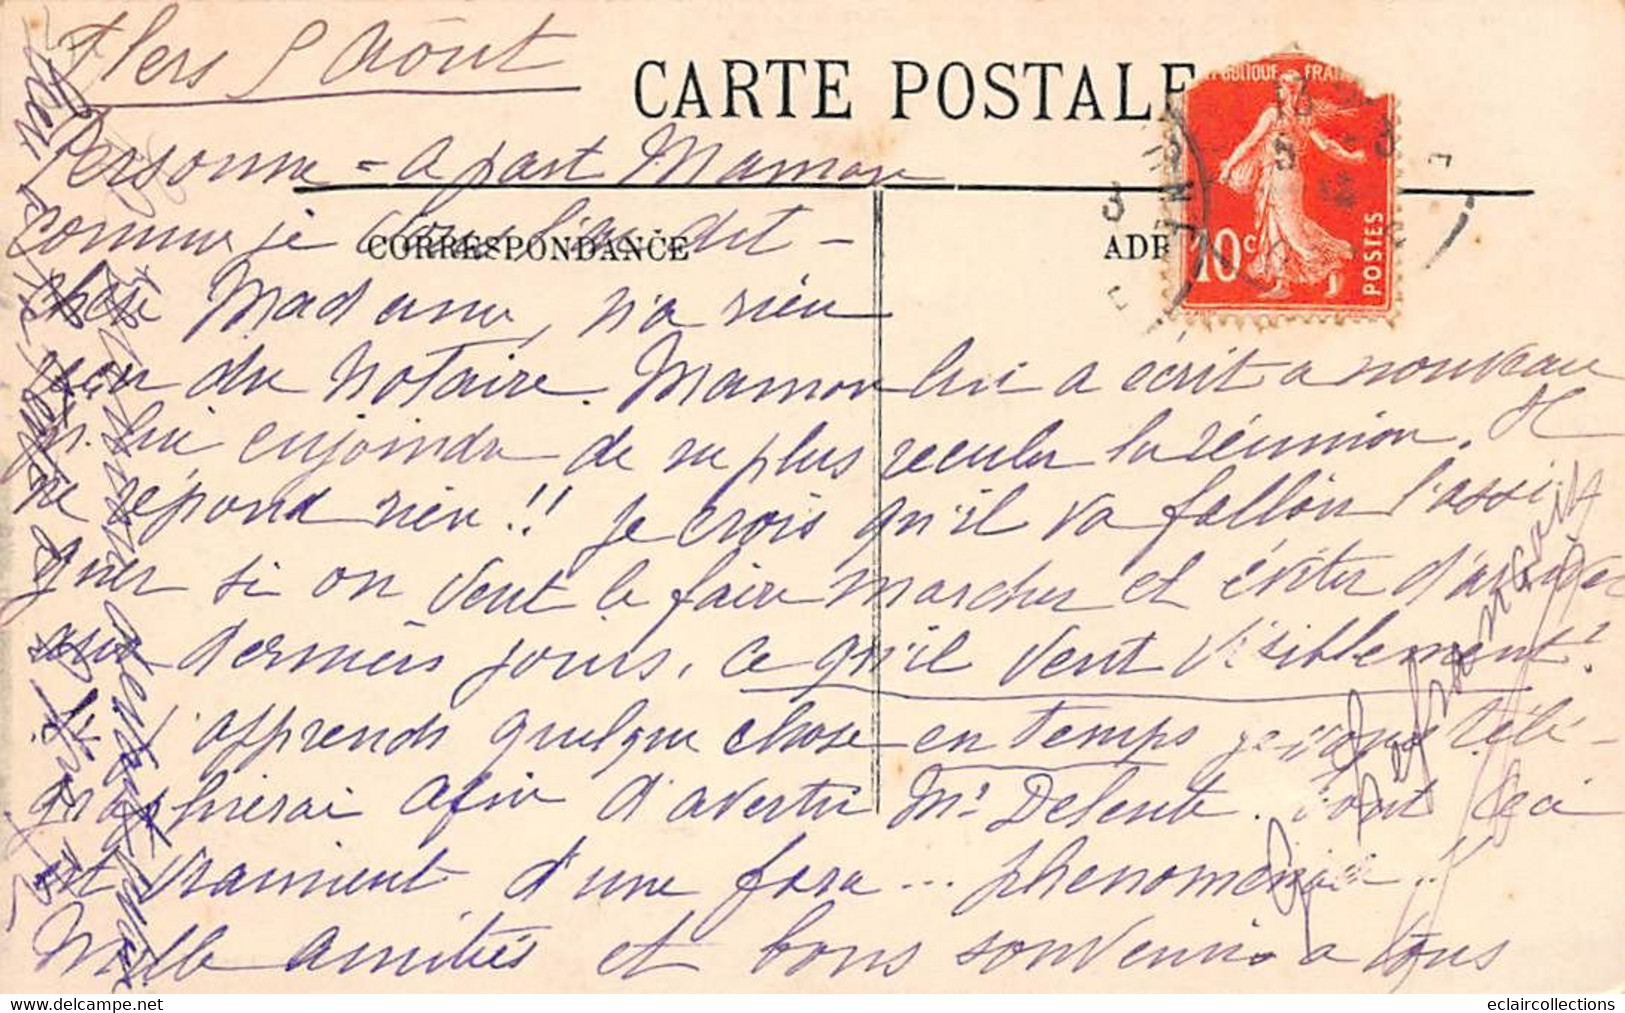 Flers 5 Août
CARTE POSTALE
Personne - a part Maman
comme je vous l'ai dit -
CORRESPONDANCE
ADR
RÉPUBLIQUE FRANÇ
10c
POSTES
chère Madame, n'a rien
reçu du Notaire. Maman lui a écrit a nouveau
p. lui enjoindre de ne plus reculer la réunion. Il
ne répond rien!! je crois qu'il va falloir l'assi-
gner si on veut le faire marcher et éviter d'arriver
aux derniers jours, ce qu'il veut visiblement!
Si j'apprends quelque chose en temps je vous télé-
graphierai afin d'avertir Mr Delente. Tout ceci
est vraiment d'une force... phenomenale!!
Mille amitiés et bons souvenirs a tous
eclaircollections